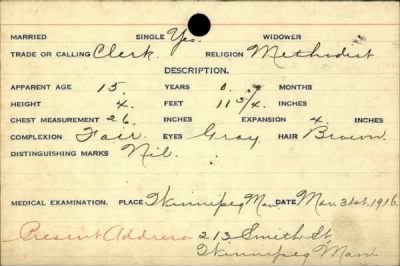 MARRIED SINGLE Yes. WIDOWER
TRADE OR CALLING Clerk RELIGION Methodist
DESCRIPTION.
APPARENT AGE 15. YEARS 0. MONTHS
HEIGHT 4. FEET 11 3/4. INCHES
CHEST MEASUREMENT 26 INCHES EXPANSION 4. INCHES
COMPLEXION Fair. EYES Gray. HAIR Brown
DISTINGUISHING MARKS Nil.
MEDICAL EXAMINATION. PLACE Winnipeg Man DATE Mar. 31st. 1916.
Present Address 213 Smith St,
Winnipeg Man.